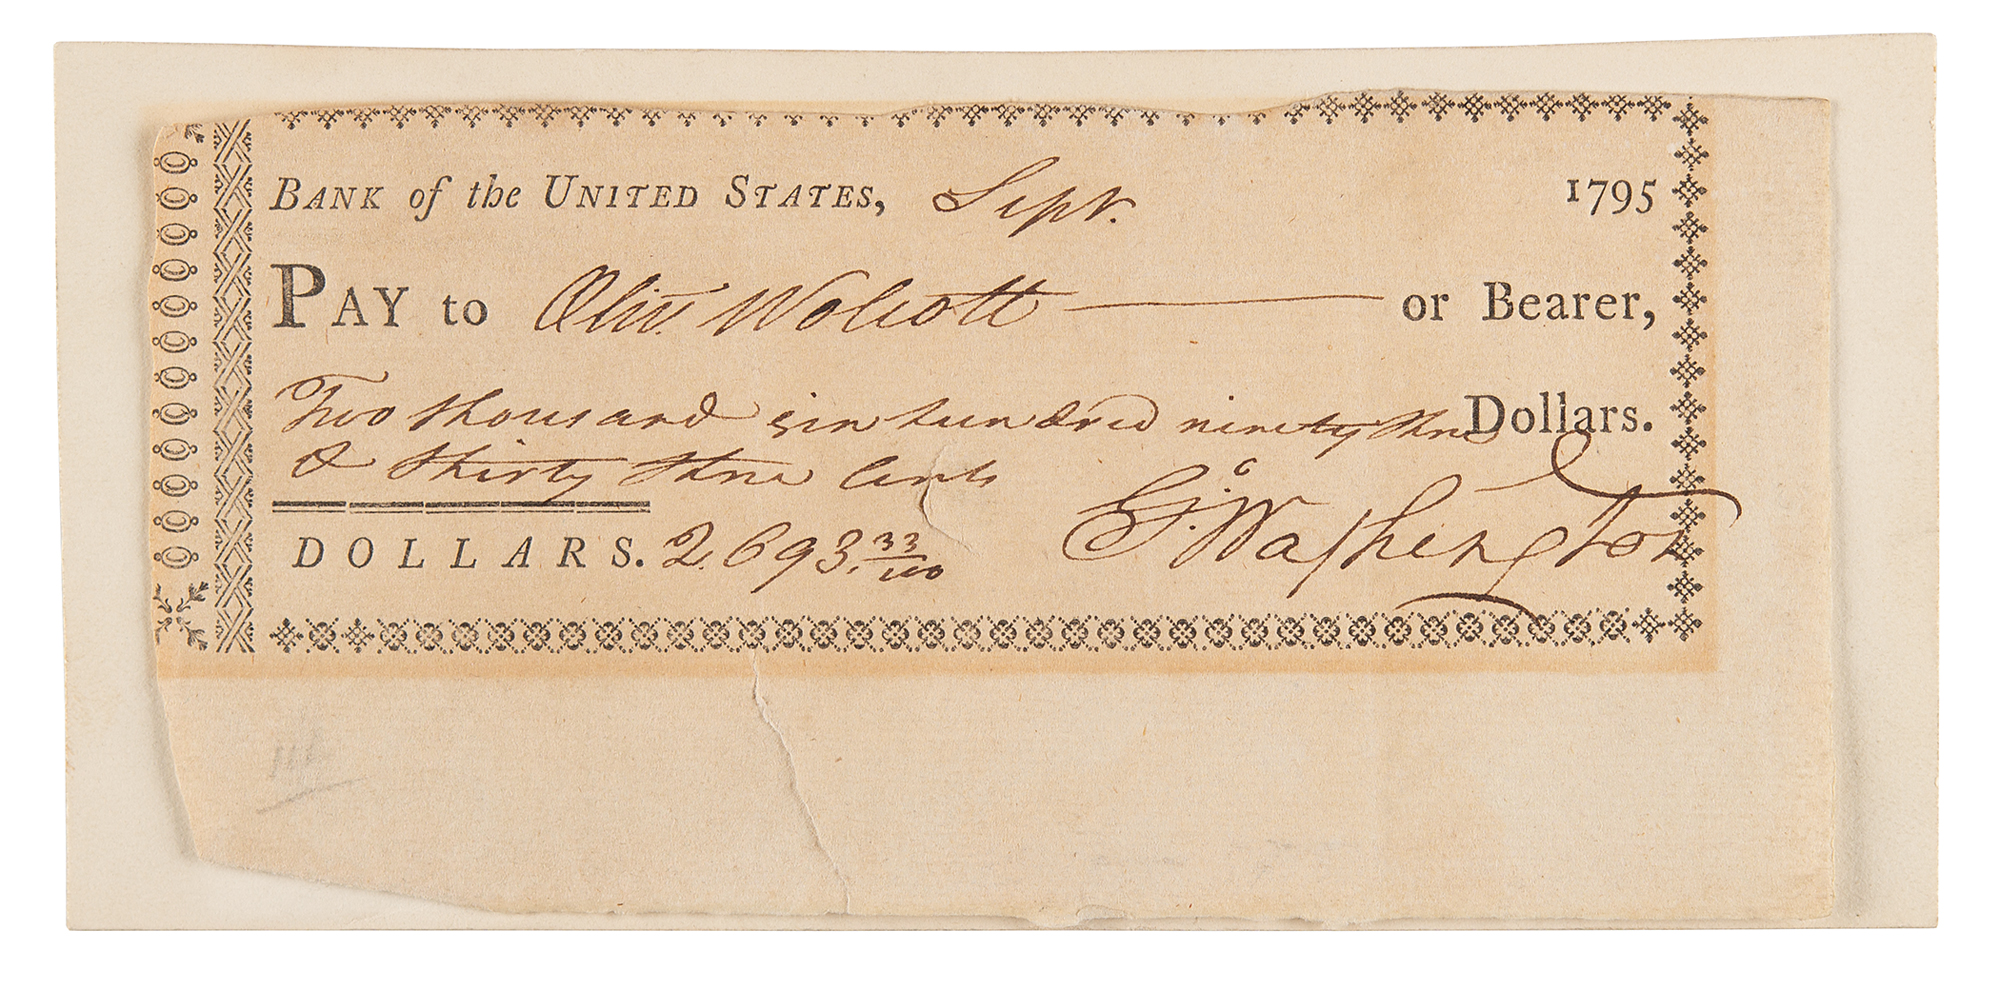 BANK of the UNITED STATES, Sept. 1795
PAY to Olivr. Wolcott or Bearer,
Two thousand six hundred ninety three Dollars.
& thirty three Cents
DOLLARS. 2,693. 33/100 Go: Washington